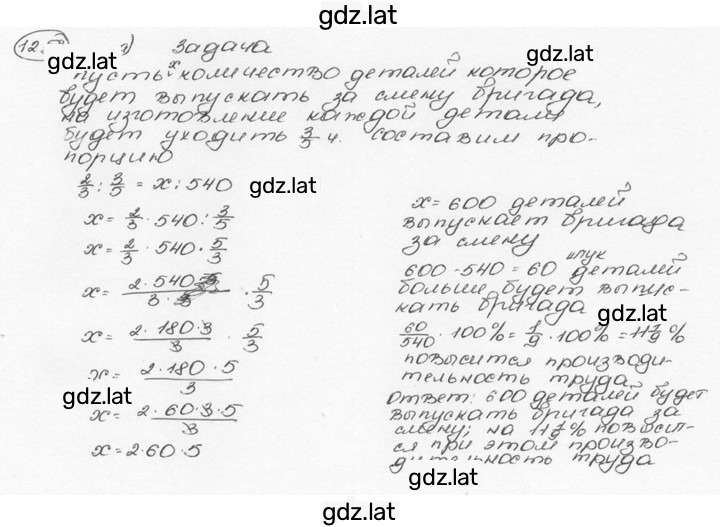 gdz.lat
12.
г) Задача
gdz.lat
пусть x количество деталей которое
будет выпускать за смену бригада,
на изготовление каждой детали
будет уходить 3/5 ч. составим про-
порцию
2/3 : 3/5 = x : 540
gdz.lat
x = 2/3 · 540 : 3/5
x = 2/3 · 540 · 5/3
x = 2·540 / 3 · 5/3
x = 2·180·3 / 3 · 5/3
x = 2·180·5 / 3
gdz.lat
x = 2·60·3·5 / 3
x = 2·60·5
x = 600 деталей
выпускает бригада
за смену
600 - 540 = 60 штук деталей
больше будет выпус-
кать бригада
gdz.lat
60/540 · 100% = 1/9 · 100% = 11 1/9 %
повысится производи-
тельность труда
Ответ: 600 деталей будет
gdz.lat
выпускать бригада за
смену; на 11 1/9 % повысил-
ся при этом произво-
дительность труда
gdz.lat
gdz.lat